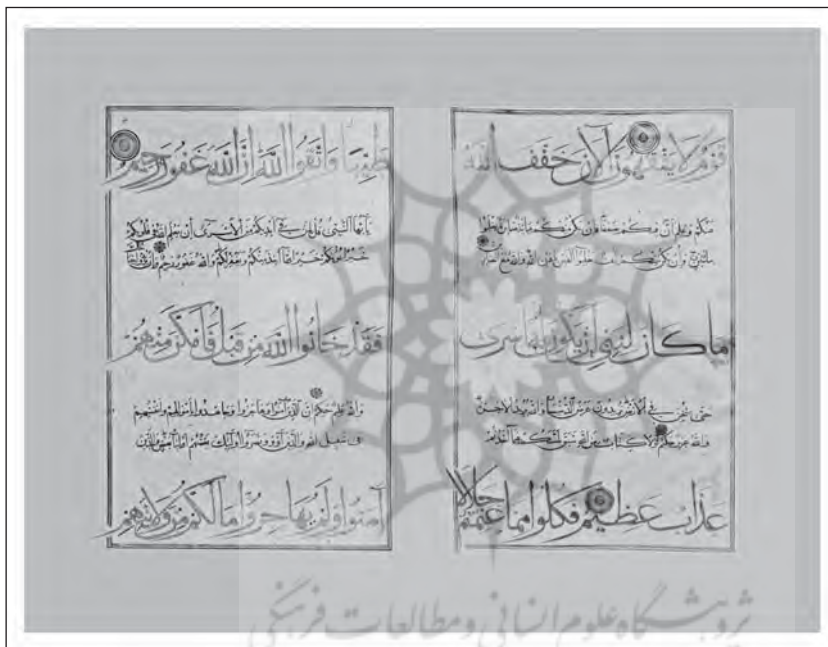 قوم لا يفقهون الآن خفف الله
عنكم وعلم أن فيكم ضعفا فإن يكن منكم مائة صابرة يغلبوا
مائتين وإن يكن منكم ألف يغلبوا ألفين بإذن الله والله مع الصابرين
ما كان لنبي أن يكون له أسرى
حتى يثخن في الأرض تريدون عرض الدنيا والله يريد الآخرة
والله عزيز حكيم لولا كتاب من الله سبق لمسكم فيما أخذتم
عذاب عظيم فكلوا مما غنمتم حلالا
طيبا واتقوا الله إن الله غفور رحيم
يا أيها النبي قل لمن في أيديكم من الأسرى إن يعلم الله في قلوبكم
خيرا يؤتكم خيرا مما أخذ منكم ويغفر لكم والله غفور رحيم وإن يريدوا خيانتك
فقد خانوا الله من قبل فأمكن منهم
والله عليم حكيم إن الذين آمنوا وهاجروا وجاهدوا بأموالهم وأنفسهم
في سبيل الله والذين آووا ونصروا أولئك بعضهم أولياء بعض والذين
آمنوا ولم يهاجروا ما لكم من ولايتهم
پژوهشگاه علوم انسانی و مطالعات فرهنگی